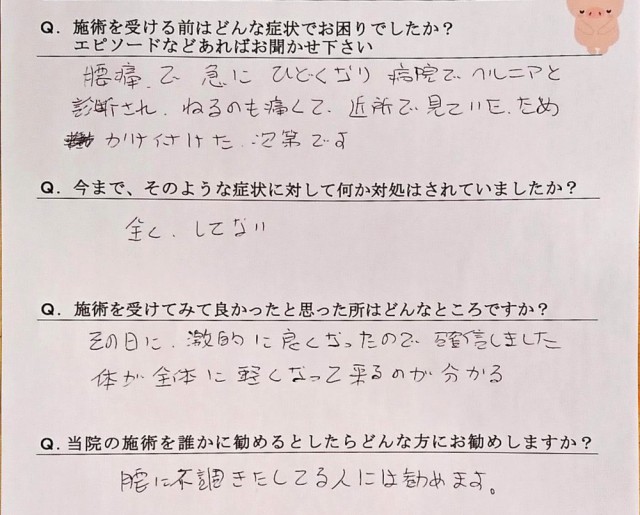 Q. 施術を受ける前はどんな症状でお困りでしたか？
エピソードなどあればお聞かせ下さい
腰痛、で 急に ひどくなり 病院で ヘルニアと
診断され、ねるのも痛くて、近所で見ていた、ため
かけ付けた 次第です
Q. 今まで、そのような症状に対して何か対処はされていましたか？
全く、してない
Q. 施術を受けてみて良かったと思った所はどんなところですか？
その日に、激的に良くなったので 確信しました
体が 全体に 軽くなって来るのが 分かる
Q. 当院の施術を誰かに勧めるとしたらどんな方にお勧めしますか？
腰に不調きたしてる人には勧めます。